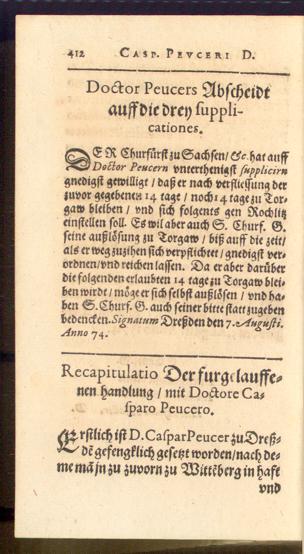 412 CASP. PEVCERI D.
Doctor Peucers Abscheidt
auff die drey suppli-
cationes.
DER Churfürst zu Sachsen / &c. hat auff
Doctor Peucern vnterthenigst supplicirn
gnedigst gewilligt / daß er nach verfliessung der
zuvor gegebenen 14 tage / noch 14 tage zu Tor-
gaw bleiben / vnd sich folgents gen Rochlitz
einstellen soll. Es wil aber auch S. Churf. G.
seine außlösung zu Torgaw / biß auff die zeit /
als er weg zuzihen sich verpflichtet / gnedigst ver-
ordnen / vnd reichen lassen. Da er aber darüber
die folgenden erlaubten 14 tage zu Torgaw blei-
ben wirdt / möge er sich selbst außlösen / vnd ha-
ben S. Churf. G. auch seiner bitte statt zugeben
bedencken. Signatum Dreßden den 7. Augusti.
Anno 74.
Recapitulatio Der furgelauffe-
nen handlung / mit Doctore Ca-
sparo Peucero.
Erstlich ist D. Caspar Peucer zu Dreß-
dē gefengklich gesetzt worden / nach de-
me mā jn zu zuvorn zu Wittēberg in haft
vnd